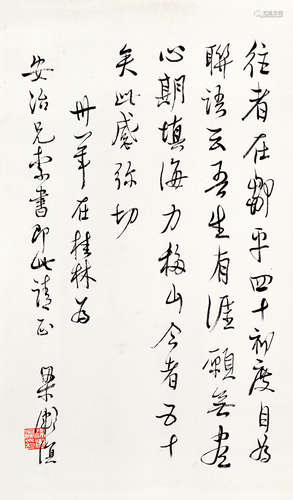 往者在鄒平四十初度自为
聯語云吾生有涯願無盡
心期填海力移山今者五十
矣此感弥切
卅一年在桂林为
安治兄索書即此請正
梁漱溟